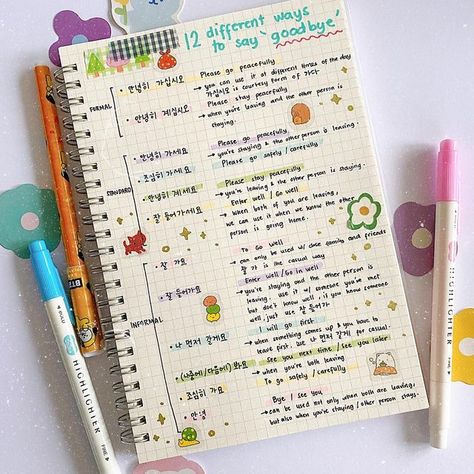 12 different ways
to say 'goodbye'
FORMAL
• 안녕히 가십시오
Please go peacefully
→ you can use it at different times of the day
가십시오 is courtesy form of 가다
• 안녕히 계십시오
Please stay peacefully
→ when you're leaving and the other person is
staying.
STANDARD
• 안녕히 가세요
Please go peacefully
→ you're staying & the other person is leaving.
• 조심히 가세요
Please go safely / carefully
• 안녕히 계세요
Please stay peacefully
→ you're leaving & the other person is staying.
• 잘 들어가세요
Enter well / Go well
→ when both of you are leaving,
we can use it when we know the other
person is going home.
INFORMAL
• 잘 가요
To Go well
→ can only be used w/ close family and friends
잘 가 is the casual way
• 잘 들어가요
Enter well / Go in well
→ you're staying and the other person is
leaving, use it w/ someone you've met
but don't know well, if you know someone
well, just use 잘 들어가
• 나 먼저 갈게요
I will go first
→ when something comes up & you have to
leave first. Use 나 먼저 갈게 for casual.
• (나중에/다음에) 봐요
See you next time / See you later
→ when you're both leaving
• 조심히 가요
To go safely / carefully
• 안녕
Bye / See you
→ can be used not only when both are leaving,
but also when you're staying / other person stays.
HIGHLIGHTER
FINE
HIGHLIGHTER
FINE
BT21